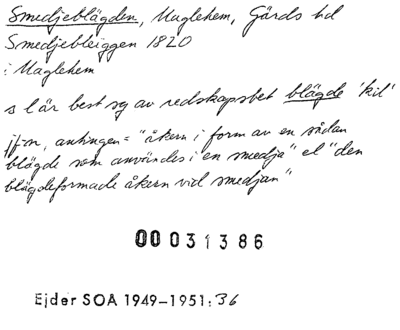 Smedjeblägden, Maglehem, Gärds hd
Smedjebleiggen 1820
i Maglehem
s l är best sg av redskapsbet blägde 'kil'
jfr, antingen = "åkern i form av en sådan
blägde som användes i en smedja" el "den
blägdeformade åkern vid smedjan"
00031386
Ejder SOA 1949–1951:36